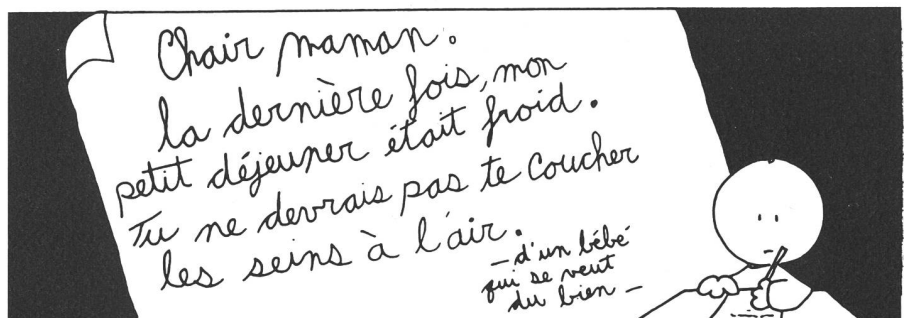 Chair maman.
la dernière fois, mon
petit déjeuner était froid.
Tu ne devrais pas te coucher
les seins à l'air.
— d'un bébé
qui se veut
du bien —